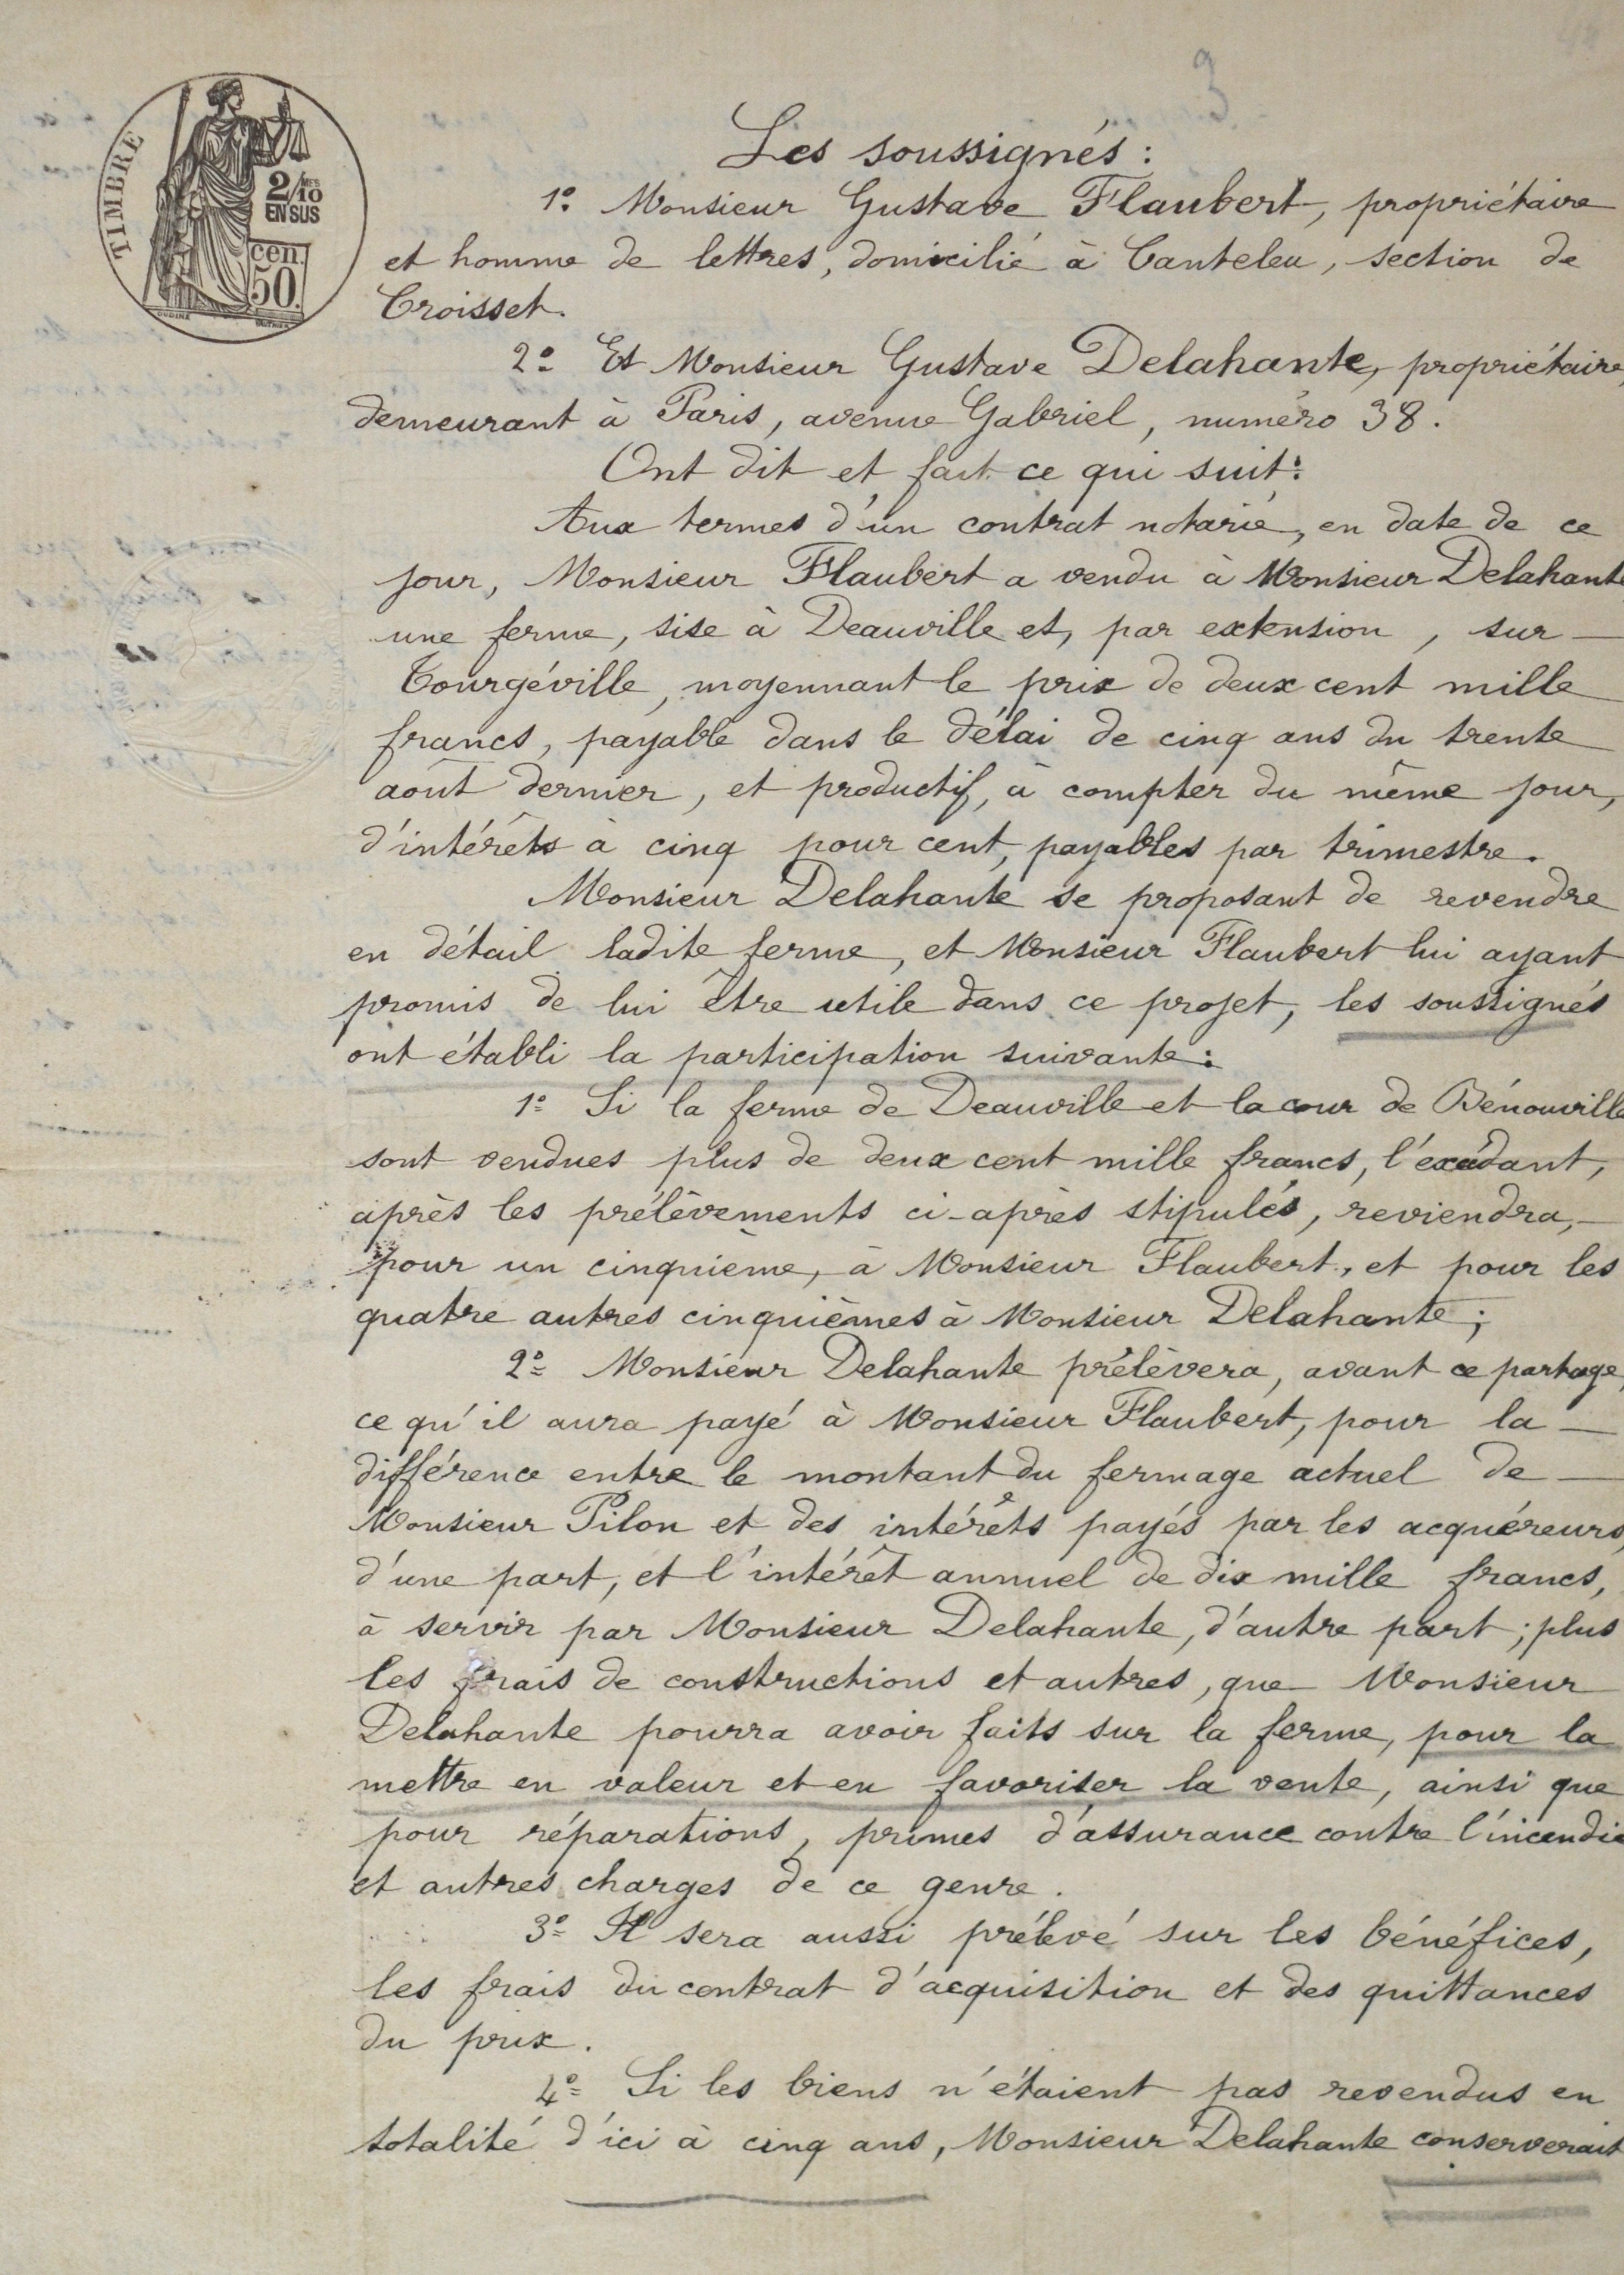 3
TIMBRE
2/10 MES
EN SUS
cen.
50.
Les soussignés :
1º. Monsieur Gustave Flaubert, propriétaire
et homme de lettres, domicilié à Canteleu, section de
Croisset.
2º. Et Monsieur Gustave Delahante, propriétaire,
demeurant à Paris, avenue Gabriel, numéro 38.
Ont dit et fait ce qui suit :
Aux termes d'un contrat notarié, en date de ce
jour, Monsieur Flaubert a vendu à Monsieur Delahante
une ferme, sise à Deauville et, par extension, sur —
Tourgéville, moyennant le prix de deux cent mille
francs, payable dans le délai de cinq ans du trente
août dernier, et productif, à compter du même jour,
d'intérêts à cinq pour cent, payables par trimestre.
Monsieur Delahante se proposant de revendre
en détail ladite ferme, et Monsieur Flaubert lui ayant
promis de lui être utile dans ce projet, les soussignés
ont établi la participation suivante :
1º. Si la ferme de Deauville et la cour de Bénouville
sont vendues plus de deux cent mille francs, l'excédant,
après les prélèvements ci-après stipulés, reviendra, —
pour un cinquième, à Monsieur Flaubert, et pour les
quatre autres cinquièmes à Monsieur Delahante ;
2º. Monsieur Delahante prélèvera, avant ce partage,
ce qu'il aura payé à Monsieur Flaubert, pour la —
différence entre le montant du fermage actuel de —
Monsieur Pilon et des intérêts payés par les acquéreurs,
d'une part, et l'intérêt annuel de dix mille francs,
à servir par Monsieur Delahante, d'autre part ; plus
les frais de constructions et autres, que Monsieur
Delahante pourra avoir faits sur la ferme, pour la
mettre en valeur et en favoriser la vente, ainsi que
pour réparations, primes d'assurance contre l'incendie
et autres charges de ce genre.
3º. Il sera aussi prélevé sur les bénéfices,
les frais du contrat d'acquisition et des quittances
du prix.
4º. Si les biens n'étaient pas revendus en
totalité d'ici à cinq ans, Monsieur Delahante conserverait